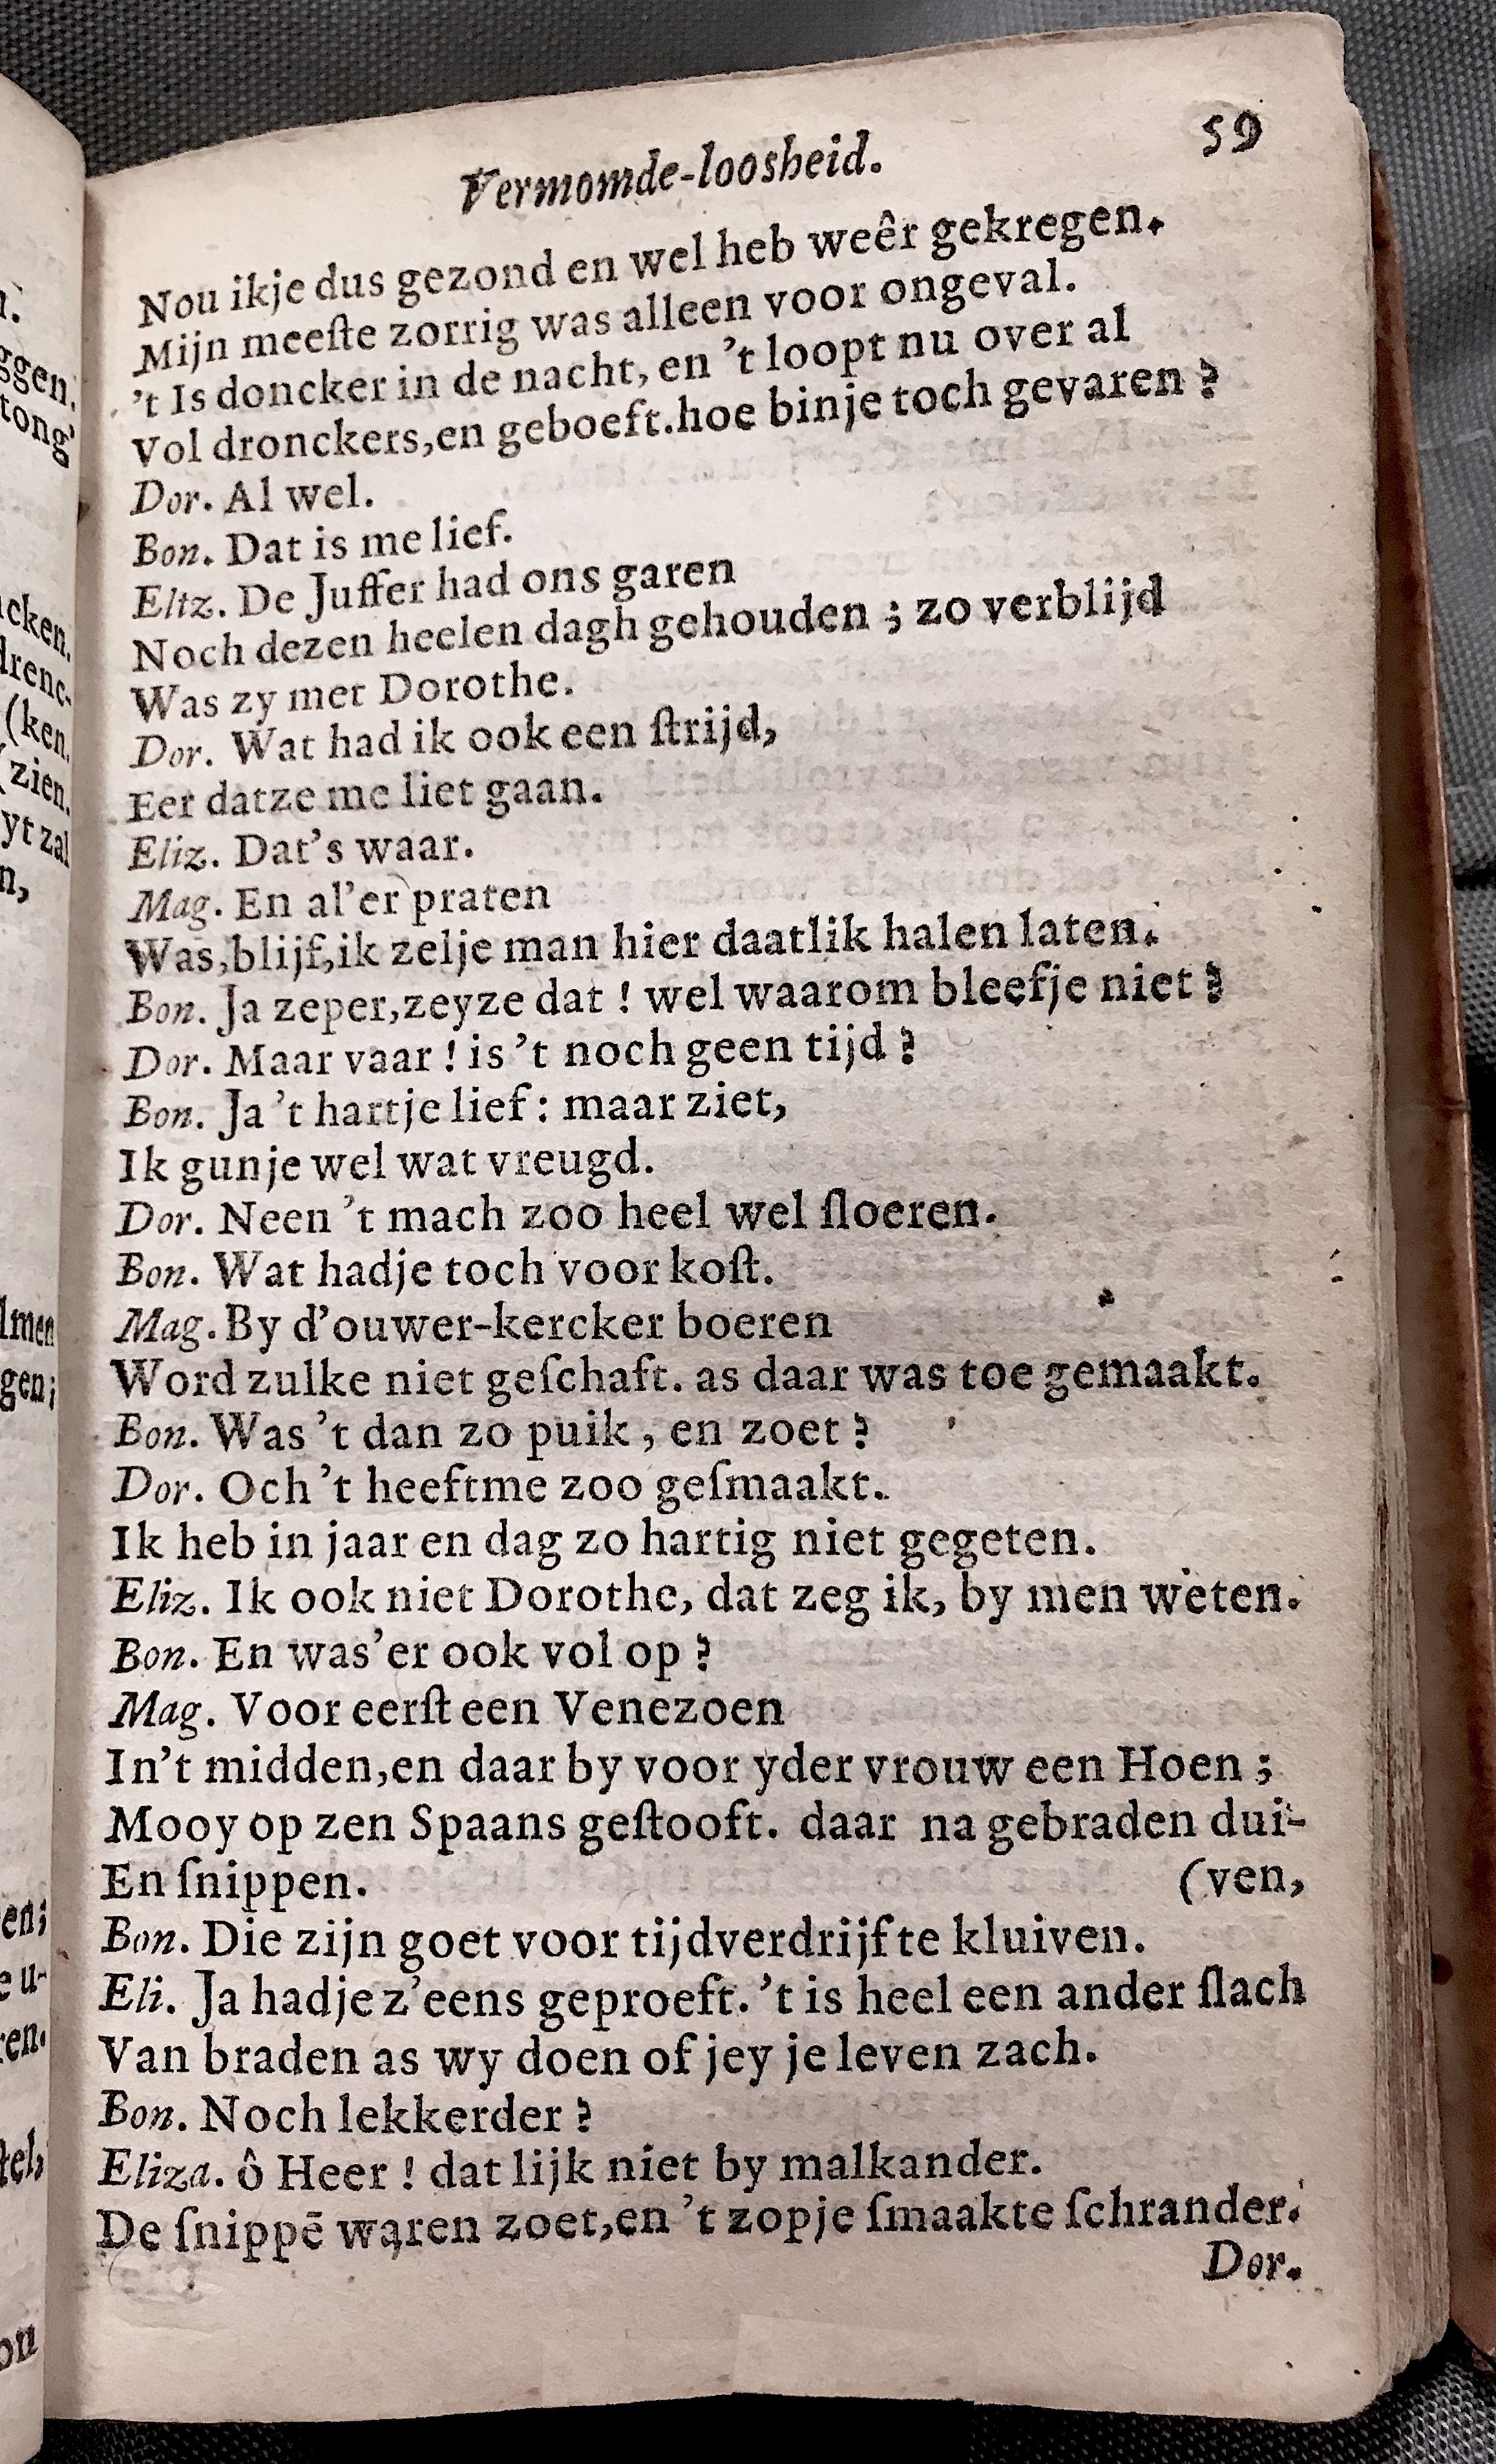 59
Vermomde-loosheid.
Nou ikje dus gezond en wel heb weêr gekregen.
Mijn meeſte zorrig was alleen voor ongeval.
't Is doncker in de nacht, en 't loopt nu over al
Vol dronckers,en geboeft.hoe binje toch gevaren?
Dor. Al wel.
Bon. Dat is me lief.
Eliz. De Juffer had ons garen
Noch dezen heelen dagh gehouden; zo verblijd
Was zy met Dorothe.
Dor. Wat had ik ook een ſtrijd,
Eer datze me liet gaan.
Eliz. Dat's waar.
Mag. En al'er praten
Was,blijf,ik zelje man hier daatlik halen laten.
Bon. Ja zeper,zeyze dat! wel waarom bleefje niet?
Dor. Maar vaar! is 't noch geen tijd?
Bon. Ja 't hartje lief: maar ziet,
Ik gunje wel wat vreugd.
Dor. Neen 't mach zoo heel wel ſloeren.
Bon. Wat hadje toch voor koſt.
Mag. By d'ouwer-kercker boeren
Word zulke niet geſchaft. as daar was toe gemaakt.
Bon. Was 't dan zo puik, en zoet?
Dor. Och 't heeftme zoo geſmaakt.
Ik heb in jaar en dag zo hartig niet gegeten.
Eliz. Ik ook niet Dorothe, dat zeg ik, by men weten.
Bon. En was'er ook vol op?
Mag. Voor eerſt een Venezoen
In't midden,en daar by voor yder vrouw een Hoen;
Mooy op zen Spaans geſtooft. daar na gebraden dui-
En ſnippen. (ven,
Bon. Die zijn goet voor tijdverdrijf te kluiven.
Eli. Ja hadje z'eens geproeft. 't is heel een ander ſlach
Van braden as wy doen of jey je leven zach.
Bon. Noch lekkerder?
Eliza. ô Heer! dat lijk niet by malkander.
De ſnippē waren zoet,en 't zopje ſmaakte ſchrander.
Dor.